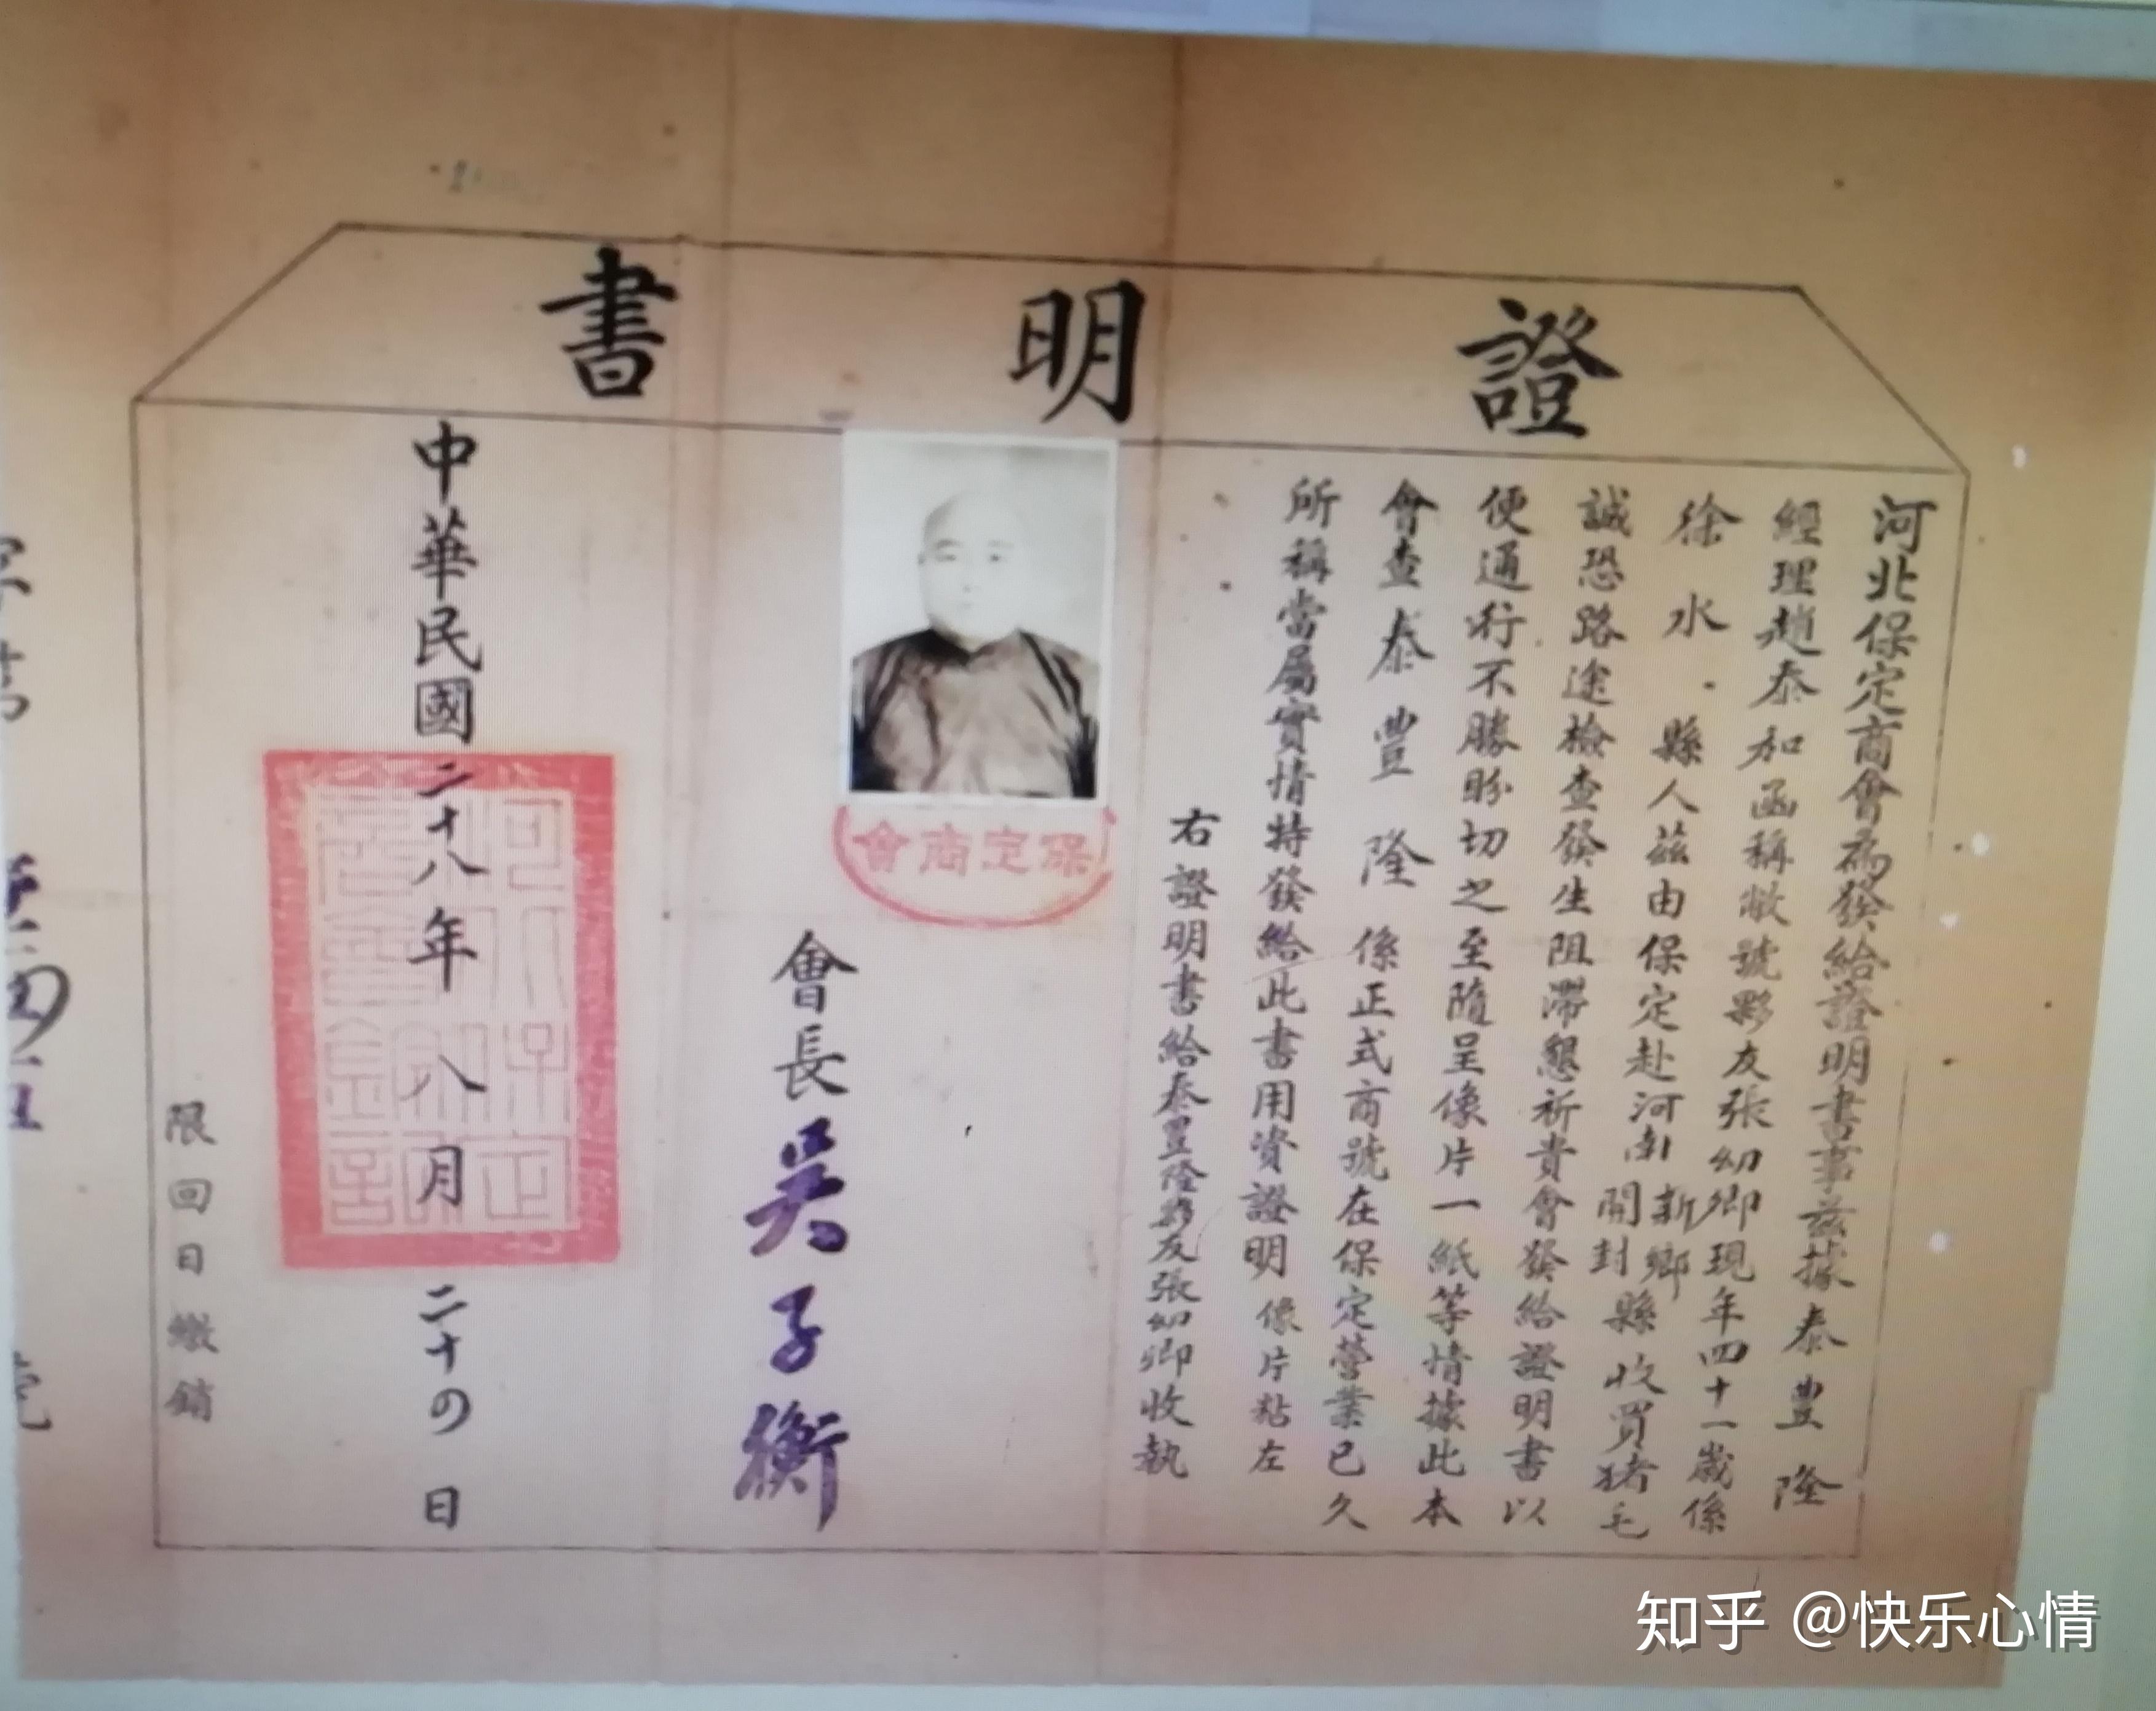 證明書
河北保定商會為發給證明書事茲據泰豐隆
經理趙泰和函稱敝號夥友張幼卿現年四十一歲係
徐水縣人茲由保定赴河南新鄉開封縣收買猪毛
誠恐路途檢查發生阻滯懇祈貴會發給證明書以
便通行不勝盼切之至隨呈像片一紙等情據此本
會查泰豐隆係正式商號在保定營業已久
所稱當屬實情特發給此書用資證明像片粘左
右證明書給泰豐隆夥友張幼卿收執
保定商會
會長吳子衡
中華民國二十八年八月二十四日
限回日繳銷
知乎 @快乐心情